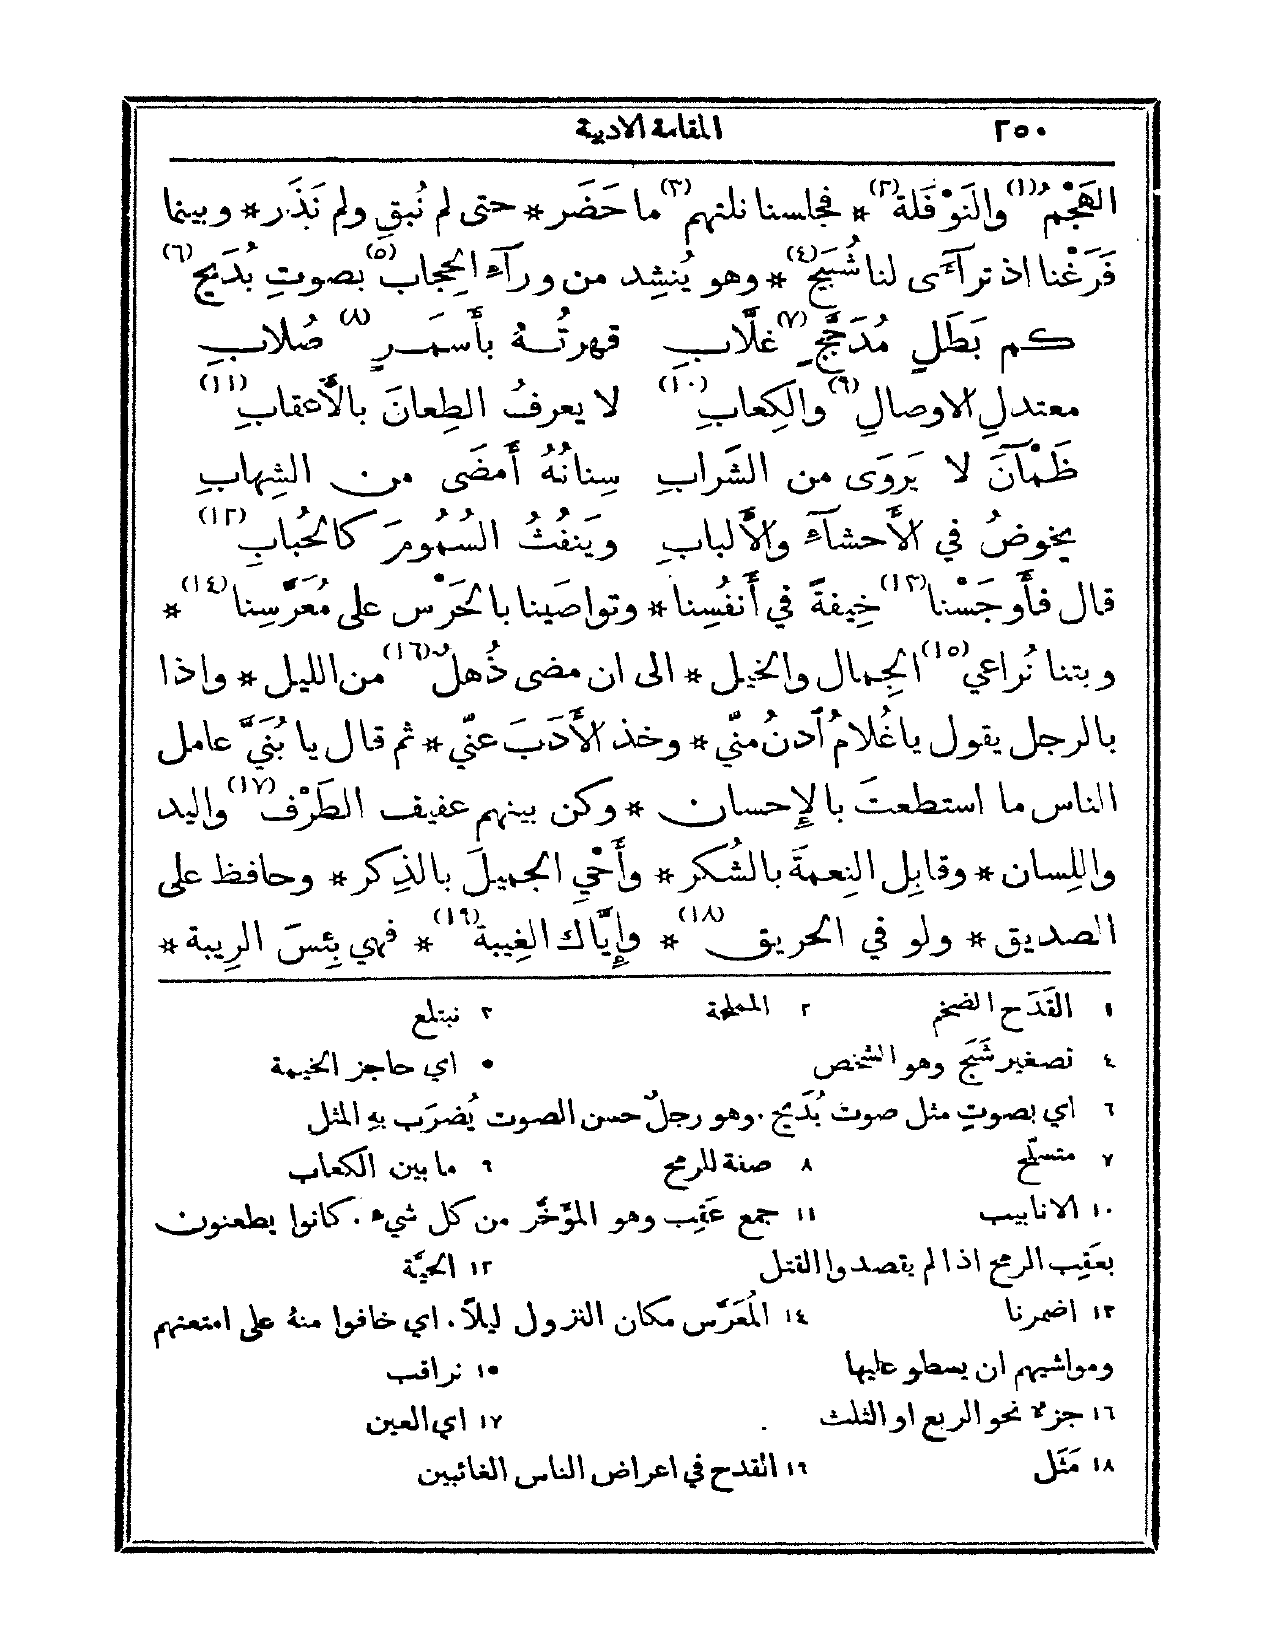 ٢٥٠ المقامة الادبية
الهَجْمُ(١) والنَوْفَلة(٢) * فجلسنا نلتهم(٣) ما حَضَر * حتى لم نُبقِ ولم نَذَر * وبينما
فَرَغْنا اذ ترآءَى لنا شُبَيحٌ(٤) * وهو يُنشِد من ورآءِ الحِجاب(٥) بصوتِ بُدَيحٍ(٦)
كم بَطَلٍ مُدَجَّجٍ(٧) غلَّابِ قهرتُهُ بأَسمَرٍ(٨) صُلابِ
معتدلِ الاوصالِ(٩) والكِعابِ(١٠) لا يعرفُ الطِعانَ بالأَعقابِ(١١)
ظَمْآنَ لا يَروَى من الشَرابِ سِنانُهُ أَمضَى من الشِهابِ
يخوضُ في الأَحشآءِ والأَلبابِ ويَنفُثُ السُمُومَ كالحُبابِ(١٢)
قال فأَوجَسْنا(١٣) خِيفةً في أَنفُسِنا * وتواصَينا بالحَرْس على مُعَرَّسِنا(١٤) *
وبتنا نُراعي(١٥) الجِمال والخيل * الى ان مضى ذُهلٌ(١٦) من الليل * واذا
بالرجل يقول ياغُلامُ اُدنُ منّي * وخذ الأَدَبَ عنّي * ثم قال يا بُنَيَّ عامل
الناس ما استطعتَ بالإِحسان * وكن بينهم عفيف الطَرْف(١٧) واليد
واللِسان * وقابِل النِعمةَ بالشُكر * وأَحْيِ الجميلَ بالذِكر * وحافظ على
الصديق * ولو في الحريق(١٨) * وإِيَّاك الغِيبة(١٩) * فهي بِئسَ الرِيبة *
١ القَدَح الضخم ٢ المملحة ٣ نبتلع
٤ تصغير شَبَح وهو الشخص ٥ اي حاجز الخيمة
٦ اي بصوتٍ مثل صوت بُدَيح . وهو رجلٌ حسن الصوت يُضرَب بهِ المثل
٧ متسلّح ٨ صفة للرمح ٩ ما بين الكعاب
١٠ الانابيب ١١ جمع عَقِب وهو المؤَخَّر من كل شيءٍ . كانوا يطعنون
بعَقِب الرمح اذا لم يقصدوا القتل ١٢ الحيَّة
١٣ اضمرنا ١٤ المُعَرَّس مكان النزول ليلاً . اي خافوا منهُ على امتعتهم
ومواشيهم ان يسطو عليها ١٥ نراقب
١٦ جزءٌ نحو الربع او الثلث ١٧ اي العين
١٨ مَثَل ١٩ القدح في اعراض الناس الغائبين